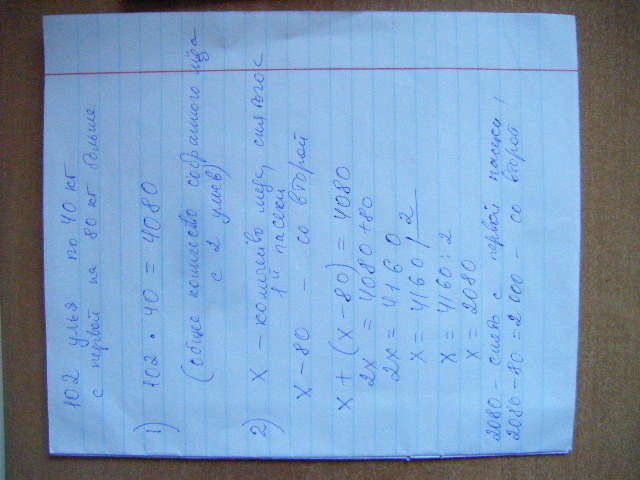 102 улья по 40 кг
с первой на 80 кг больше
1) 102 • 40 = 4080
(общее количество собранного мёда
с 2 ульев)
2) X – количество меда, снятого с
1й пасеки
X – 80 – со второй
X + (X – 80) = 4080
2X = 4080 + 80
2X = 4160
X = 4160 / 2
X = 4160 : 2
X = 2080
2080 – с первой пасеки,
2080 – 80 = 2000 – со второй.